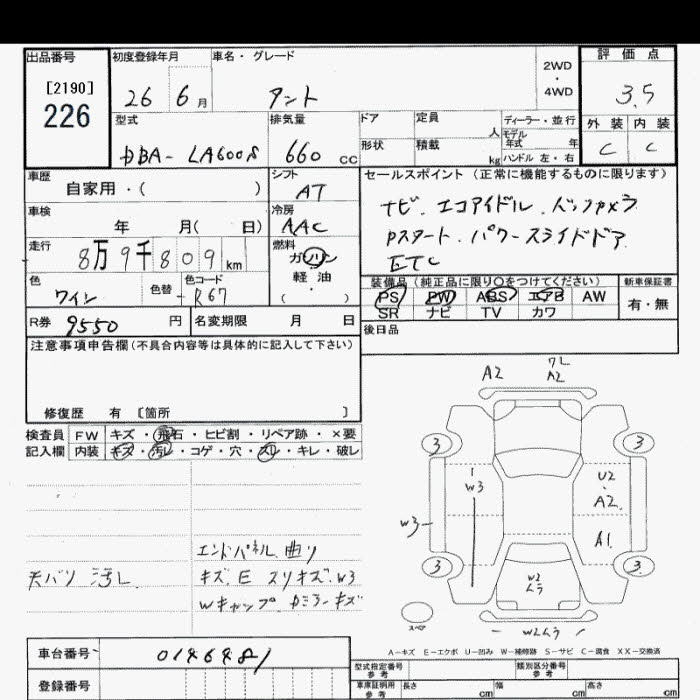 出品番号 初度登録年月 車名・グレード 2WD・4WD 評価点
[2190]
226
26 6月 タント 3.5
型式 排気量 ドア 定員 人 ディーラー・並行 外装 内装
DBA- LA600S 660 CC 形状 積載 kg モデル年式 年 ハンドル 左・右 C C
車歴 自家用・( ) シフト AT セールスポイント (正常に機能するものに限ります)
車検 年 月( 日) 冷房 AAC ナビ. エコアイドル. バックカメラ
走行 8万9千809km 燃料 ガソリン・軽油・( ) Pスタート. パワースライドドア.
ETC
色 ワイン 色替 色コード R67 装備品 (純正品に限り○をつけてください) 新車保証書
PS PW ABS エアB AW 有・無
SR ナビ TV カワ
R券 9550円 名変期限 月 日 後日品
注意事項申告欄(不具合内容等は具体的に記入して下さい)
修復歴 有 [箇所 ]
検査員 FW キズ・飛石・ヒビ割・リペア跡・×要
記入欄 内装 キズ・汚レ・コゲ・穴・スレ・キレ・破レ
A2 ワレ A2
3 3
W3 U2・A2
W3 A1
3 3
W2ムラ
スペア W2ムラ
エンドパネル 曲リ
天バリ 汚レ キズ.E スリキズ.W3
Wキャップ. Dミラーキズ
A-キズ E-エクボ U-凹み W-補修跡 S-サビ C-腐食 XX-交換済
車台番号 0146481
型式指定番号 参考 類別区分番号 参考
登録番号 車庫証明用 参考 長さ cm 幅 cm 高さ cm